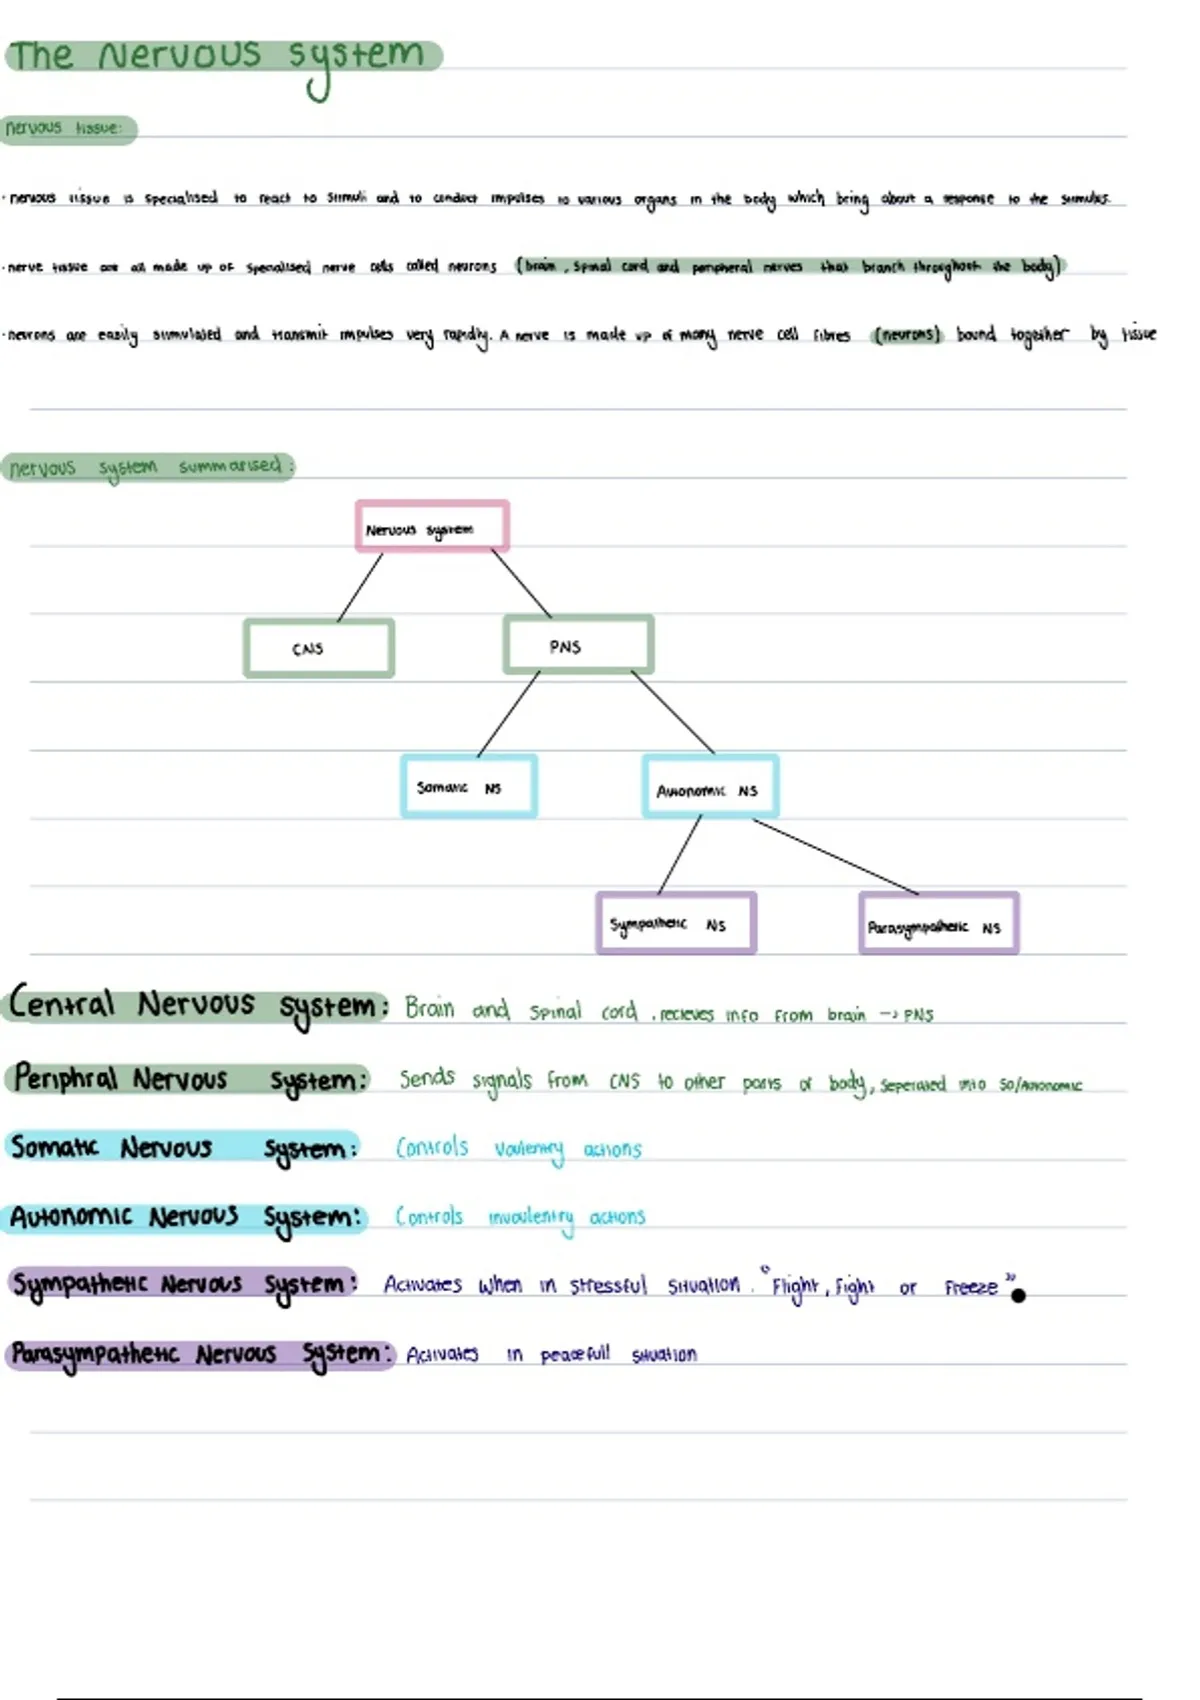 The Nervous system
nervous tissue:
· nervous tissue is specialised to react to stimuli and to conduct impulses to various organs in the body which bring about a response to the stimulus.
· nerve tissue are all made up of specialised nerve cells called neurons (brain, spinal cord and peripheral nerves that branch throughout the body)
· neurons are easily stimulated and transmit impulses very rapidly. A nerve is made up of many nerve cell fibres (neurons) bound together by tissue
nervous system summarised:
Nervous system
CNS PNS
Somatic NS Autonomic NS
Sympathetic NS Parasympathetic NS
Central Nervous system: Brain and spinal cord. recieves info from brain -> PNS
Periphral Nervous system: Sends signals from CNS to other parts of body, seperated into so/Autonomic
Somatic Nervous System: Controls voulentry actions
Autonomic Nervous System: Controls invoulentry actions
Sympathetic Nervous System: Activates when in stressful situation. "Flight, Fight or Freeze"
Parasympathetic Nervous System: Activates in peacefull situation